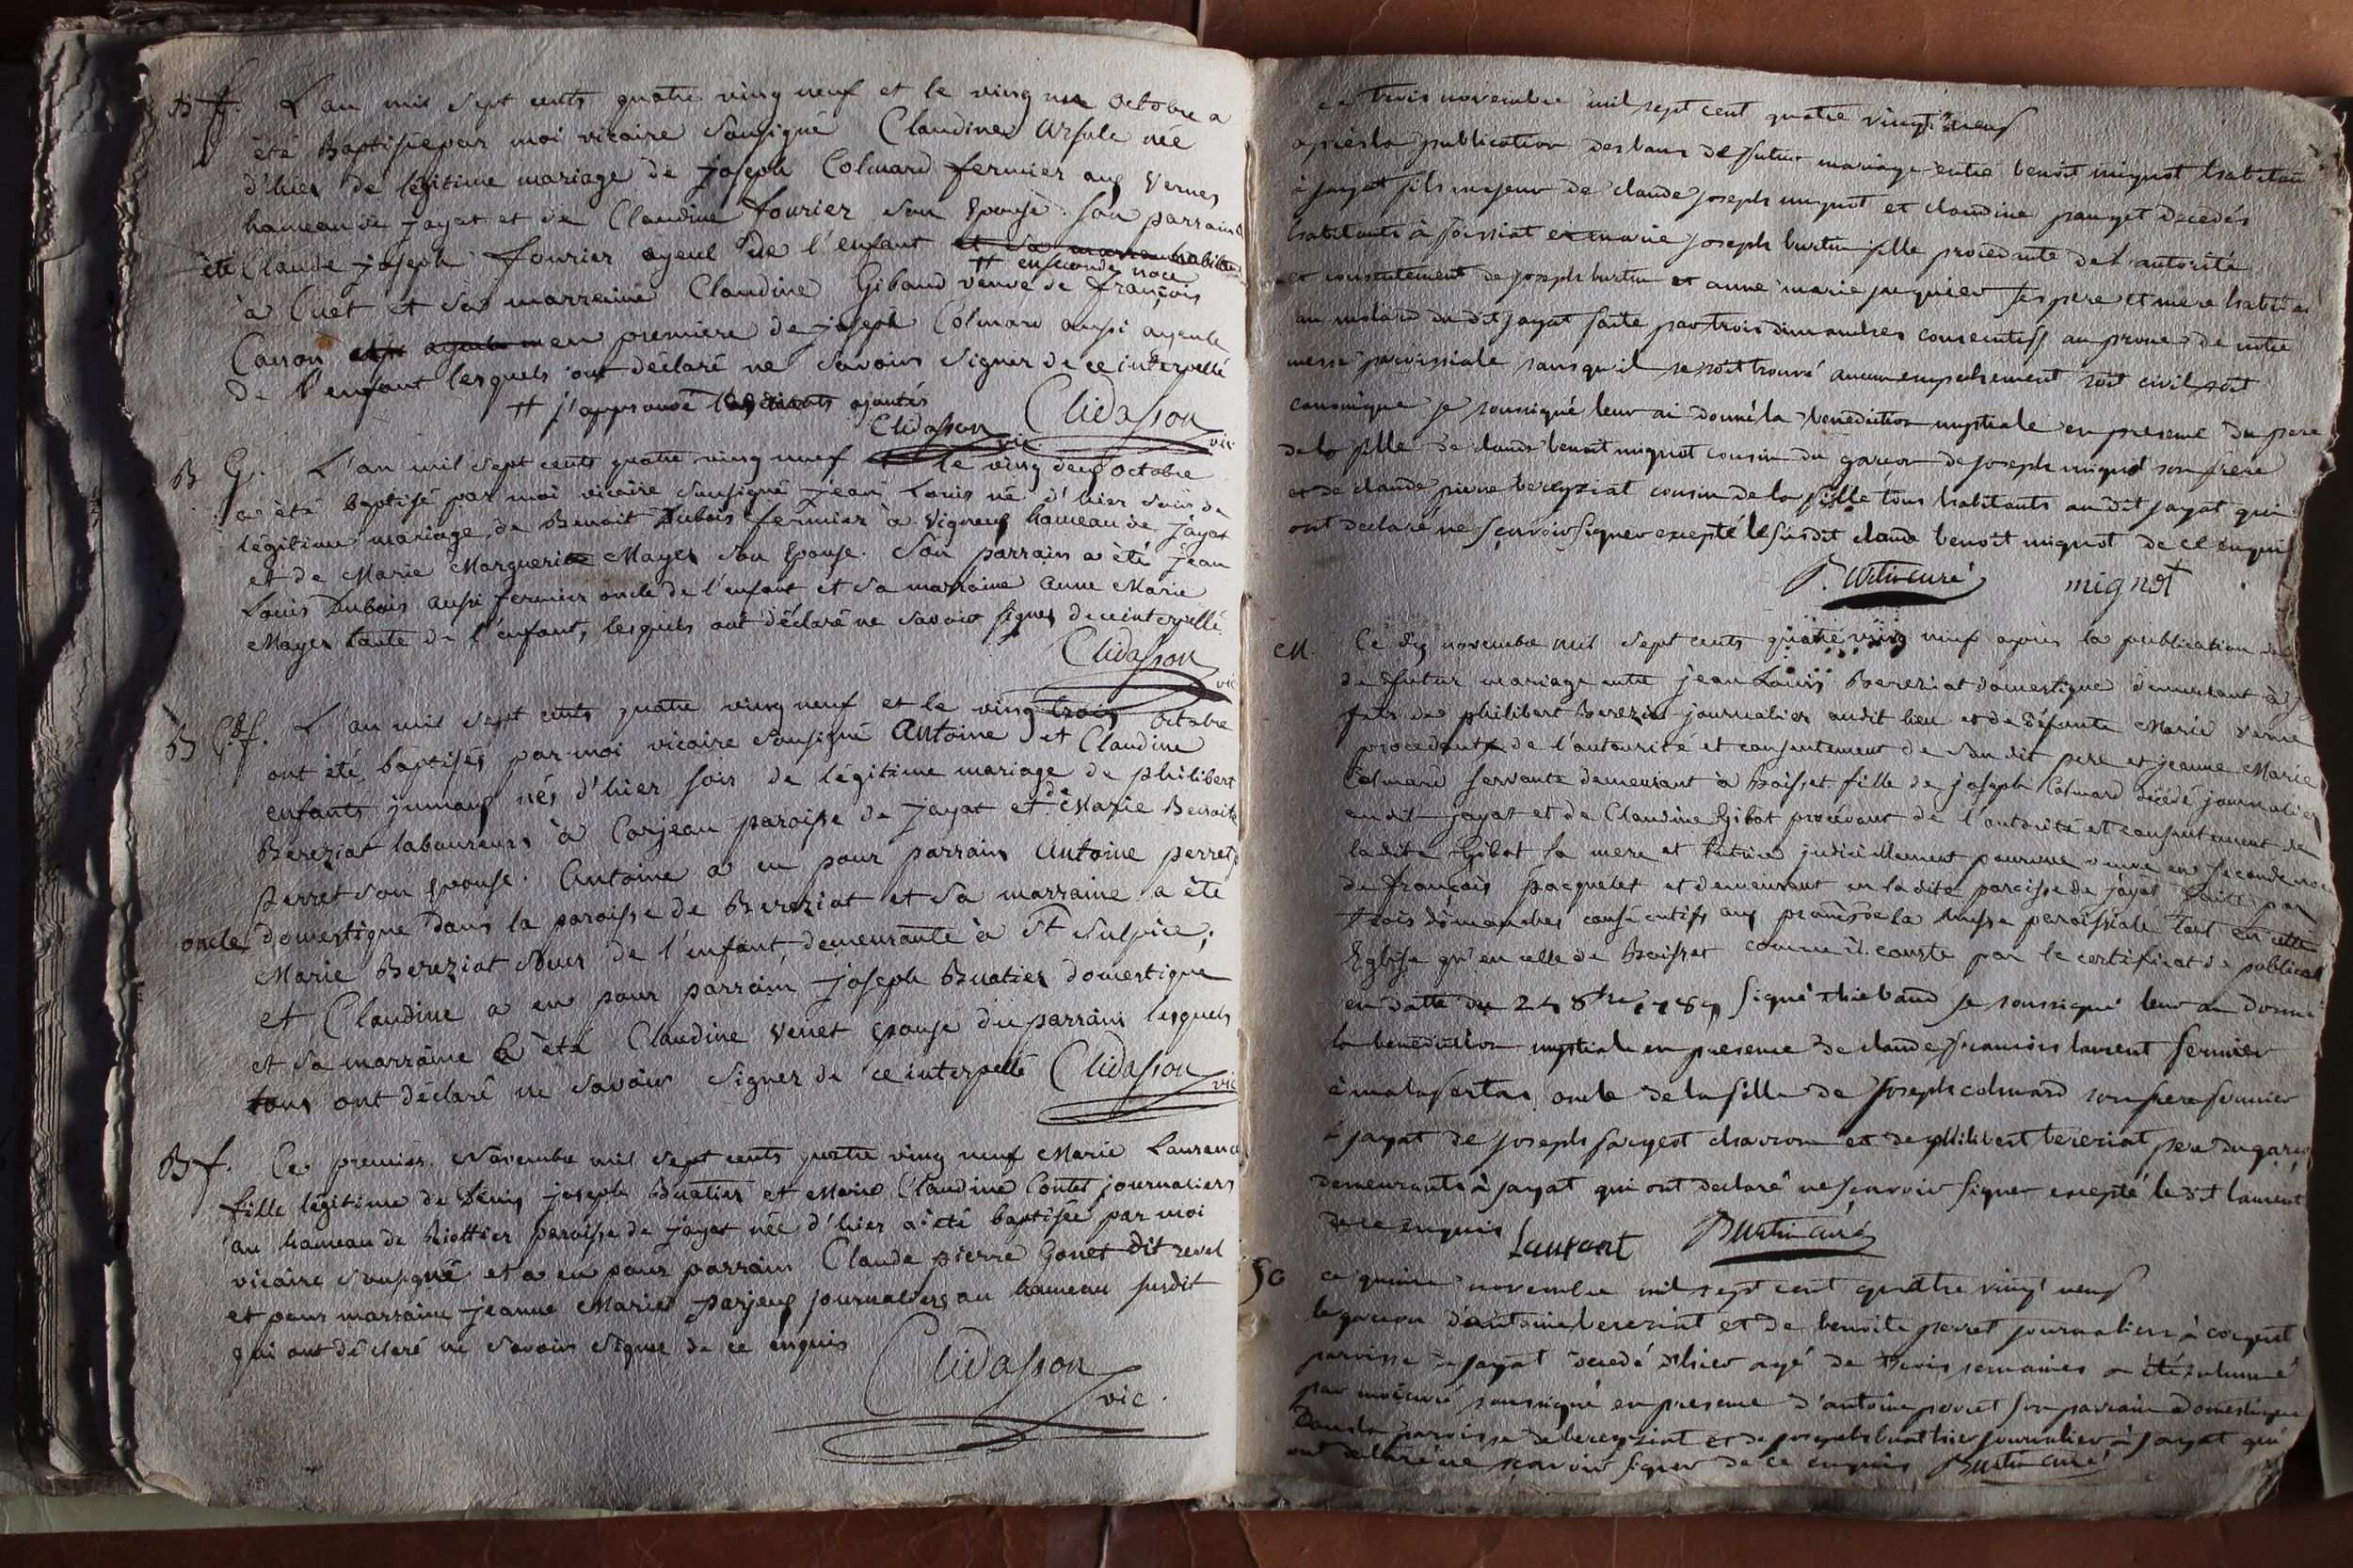 B f. L'an mil sept cents quatre ving neuf et le ving un octobre a
été Baptisée par moi vicaire sousigné Claudine Ursule née
d'hier de légitime mariage de joseph Colmard fermier aux Vernes
hameau de jayat et de Claudine fourier son Epouse. son parrain a
été Claude joseph fourier ayeul de l'enfant
à Cuet et sa marraine Claudine Gibaud veuve de françois
# en secondes noce
Canon en premiere de joseph Colmard aussi ayeule
de l'enfant lesquels ont déclaré ne savoir signer de ce interpellé
# j'approuve ajoutés
Clidasson vic Clidasson vic
B G. L'an mil sept cents quatre ving neuf le ving deux octobre
a été baptisé par moi vicaire sousigné jean Louis né d'hier soir de
légitime mariage de Benoit Dubois fermier à Vigneux hameau de jayat
et de Marie Marguerite Mayer son Epouse. Son parrain a été jean
Louis Dubois aussi fermier oncle de l'enfant et sa marraine anne Marie
Mayer tante de l'enfant, lesquels ont déclaré ne savoir signer de ce interpellé.
Clidasson vic
B G. et f. L'an mil sept cents quatre ving neuf et le ving trois octobre
ont été baptisés par moi vicaire sousigné Antoine et Claudine
enfants jumaux nés d'hier soir de légitime mariage de philibert
Bereziat laboureurs à Corjeau paroisse de jayat et de Marie Benoite
Perret son Epouse. Antoine a eu pour parrain Antoine perret
oncle domestique dans la paroisse de Bereziat et sa marraine a été
Marie Bereziat soeur de l'enfant, demeurante à St Sulpice;
et Claudine a eu pour parrain joseph Buatier domestique
et sa marraine a été Claudine Venet epouse du parrain lesquels
tous ont déclaré ne savoir signer de ce interpellé Clidasson vic
B f. Ce premier Novembre mil sept cents quatre ving neuf Marie Laurence
fille légitime de Denis joseph Buatier et Marie Claudine Contet journaliers
au hameau de paroisse de jayat née d'hier a été baptisée par moi
vicaire sousigné et a eu pour parrain Claude pierre Gonet dit revel
et pour marraine jeanne Marie parjeux journaliers au hameau susdit
qui ont déclaré ne savoir signer de ce enquis
Clidasson
vic.
ce trois novembre mil sept cent quatre vingt neuf
après la publication des bans de futur mariage entre benoit mignot habitant
à jayat fils majeur de claude joseph mignot et claudine pauget decedés
habitants à foissiat et marie joseph burtin fille procedante de l'autorité
et consentement de joseph burtin et anne marie juquier ses pere et mere habitants
au molard du dit jayat faite par trois dimanches consecutifs au prone de notre
messe paroissiale sans qu'il se soit trouvé aucun empechement soit civil soit
canonique je soussigné leur ai donné la benediction nuptiale en presence du pere
de la fille de claude benoit mignot cousin du garcon de joseph mignot son frere
et de claude pierre bereyziat cousin de la fille tous habitants au dit jayat qui
ont declaré ne sçavoir signer excepté le susdit claude benoit mignot de ce enquis
Burtin curé mignot
M. Ce dix novembre mil sept cents quatre ving neuf après la publication des
de futur mariage entre jean Louis Bereziat domestique demeurant à
fils de philibert Bereziat journalier audit lieu et de défunte Marie Verne
procedant de l'autorité et consentement de son dit pere et jeanne Marie
Colmard servante demeurant à Boisset fille de joseph Colmard décédé journalier
audit jayat et de Claudine Gibot procédant de l'autorité et consentement de
ladite Gibot sa mere et tutrice judiciellement pourvue veuve en seconde noce
de françois pacquelet et demeurant en la dite paroisse de jayat faite par
trois dimanches consécutifs aux prones de la messe paroissiale tant en cette
Eglise qu'en celle de Boisset comme il conste par le certificat de publication
en datte du 8bre 1789 signé thiebaud je soussigné leur ai donné
la benediction nuptiale en presence de claude francois laurent fermier
à malafertas oncle de la fille de joseph colmard son frere fermier
à jayat de joseph charron et de philibert bereziat pere du garcon
demeurants à jayat qui ont declaré ne sçavoir signer excepté le dit laurent
de ce enquis Laurant Burtin curé
ce quinze novembre mil sept cent quatre vingt neuf
le garcon d'antoine bereziat et de benoite perret journaliers à corgent
paroisse de jayat decedé d'hier agé de trois semaines a été inhumé
par moi curé soussigné en presence d'antoine perret son parrain domestique
dans la paroisse de bereyziat et de joseph buathier journalier à jayat qui
ont declaré ne sçavoir signer de ce enquis Burtin curé